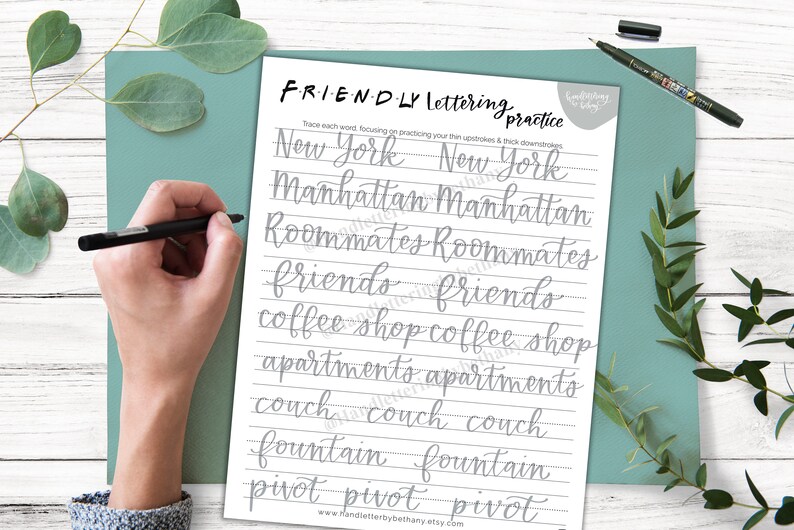 F·R·I·E·N·D·L·Y Lettering practice
handlettering by bethany
Trace each word, focusing on practicing your thin upstrokes & thick downstrokes.
New York New York
Manhattan Manhattan
Roommates Roommates
friends friends
coffee shop coffee shop
apartments apartments
couch couch couch
fountain fountain
pivot pivot pivot
www.handletterbybethany.etsy.com
@Handletteringbybethany
@Handletteringbybethany
@Handletteringbybethany